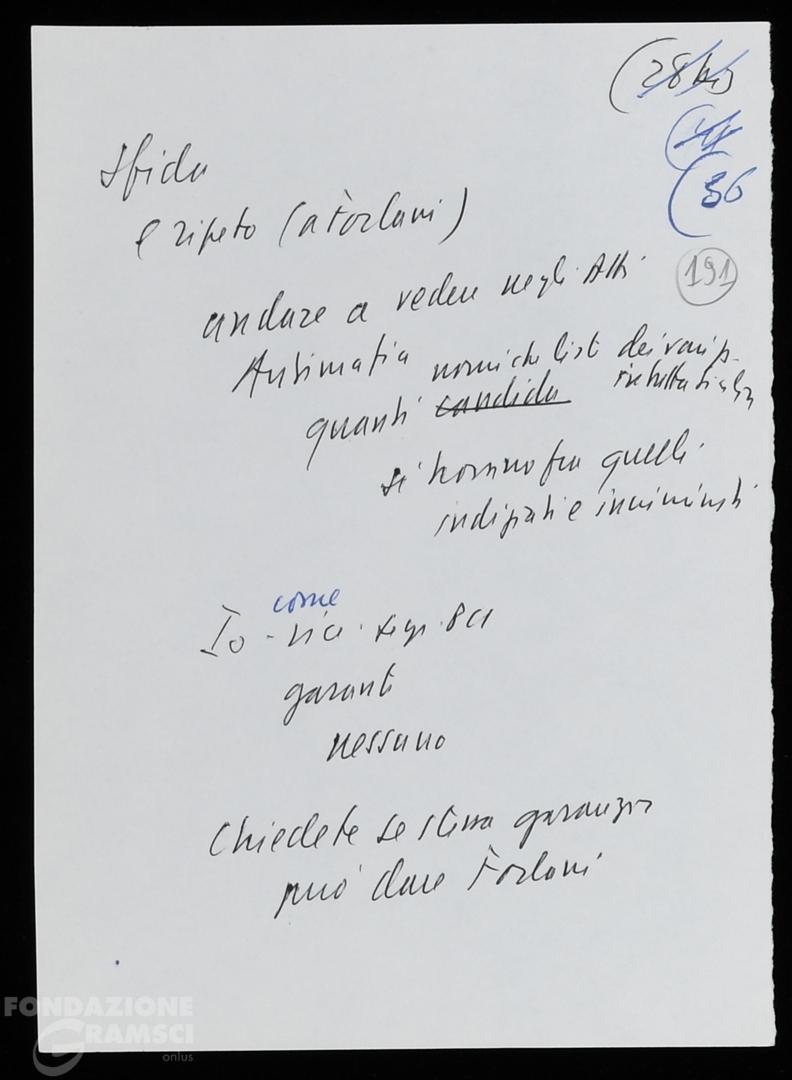 (28 bis
(36
191
Sfida
e ripeto (a Forlani)
andare a vedere negli Atti
Antimafia nomi che list dei vari p.
quanti candida in tutta Italia
si trovino fra quelli
indiziati e incriminati
come
Io - vice segr. PCI
garanti
nessuno
Chiedete se stessa garanzia
può dare Forlani
FONDAZIONE
GRAMSCI
onlus